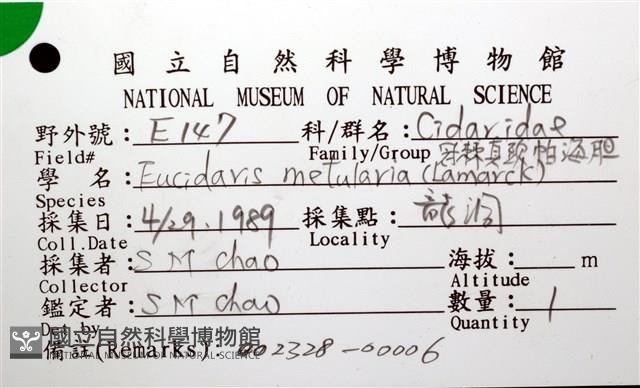 國立自然科學博物館
NATIONAL MUSEUM OF NATURAL SCIENCE
野外號: E147 科/群名: Cidaridae
Field# Family/Group 冠棘真頭帕海胆
學 名: Eucidaris metularia (Lamarck)
Species
採集日: 4/29.1989 採集點: 龍洞
Coll.Date Locality
採集者: S M Chao 海拔: m
Collector Altitude
鑑定者: S M Chao 數量: 1
Det.by Quantity
國立自然科學博物館
NATIONAL MUSEUM OF NATURAL SCIENCE
備註(Remarks): 002328-00006